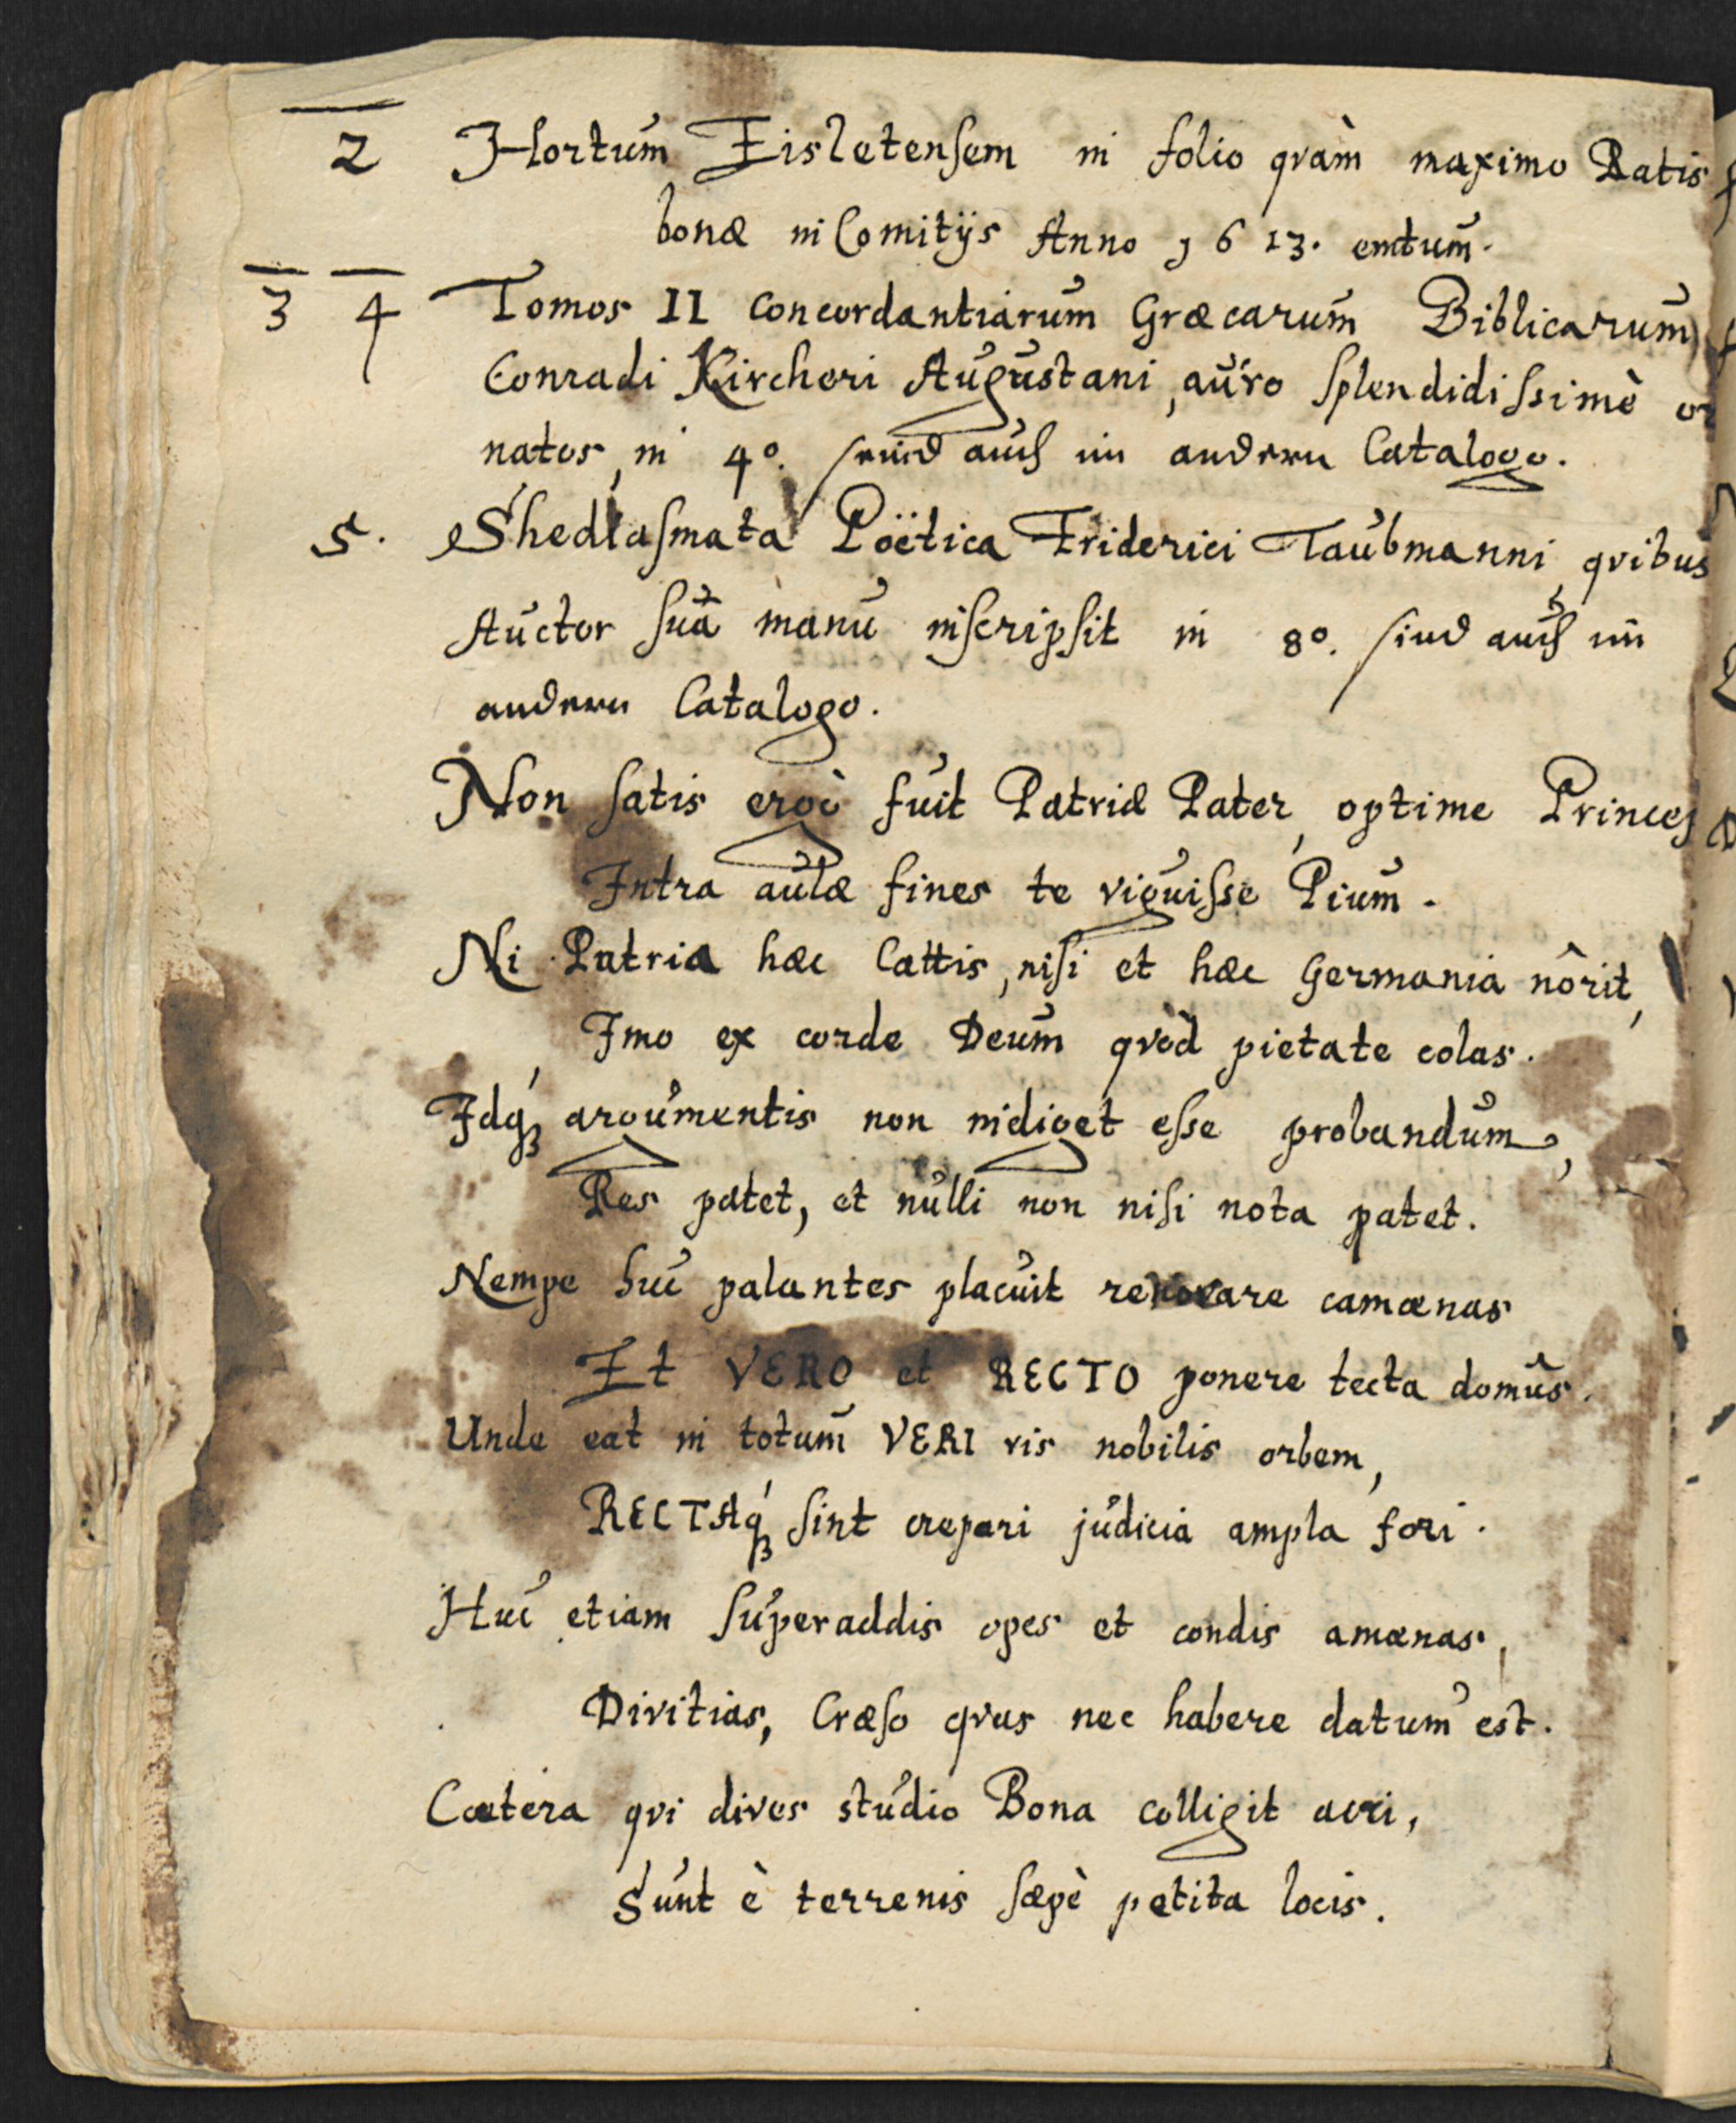 2 Hortum Eisletensem in folio qvàm maximo Ratis
bonæ in Comitijs Anno 1613. emtum.
3 4 Tomos II Concordantiarum Græcarum Biblicarum
Conradi Kircheri Augustani, auro splendidissimè or
natos, in 4º. seind auch im andern Catalogo.
5. Shediasmata Poëtica Friderici Taubmanni, qvibus
Auctor suâ manu inscripsit in 8º. sind auch im
andern Catalogo.
Non satis ergò fuit Patriæ Pater, optime Princeps
Intra aulæ fines te viguisse Pium.
Ni Patria hæc Cattis, nisi et hæc Germania nôrit,
Imo ex corde Deum qvòd pietate colas.
Idq́ꝫ argumentis non indiget esse probandum,
Res patet, et nulli non nisi nota patet.
Nempe huc palantes placuit revocare camœnas
Et VERO et RECTO ponere tecta domûs.
Unde eat in totum VERI vis nobilis orbem,
RECTAq́ꝫ sint crepari judicia ampla fori.
Huc etiam superaddis opes et condis amœnas,
Divitias, Cræso qvas nec habere datum est.
Cætera qvi dives studio Bona colligit acri,
Sunt è terrenis sæpè petita locis.